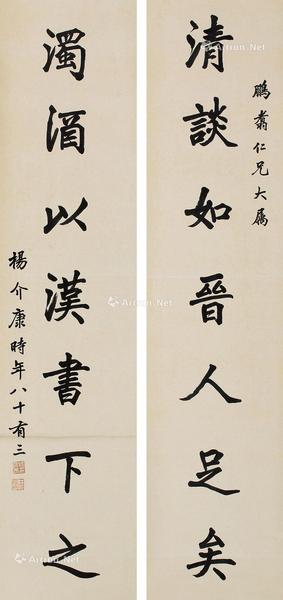 鵬翥仁兄大属
清談如晉人足矣
濁酒以漢書下之
楊介康時年八十有三
Artron.Net